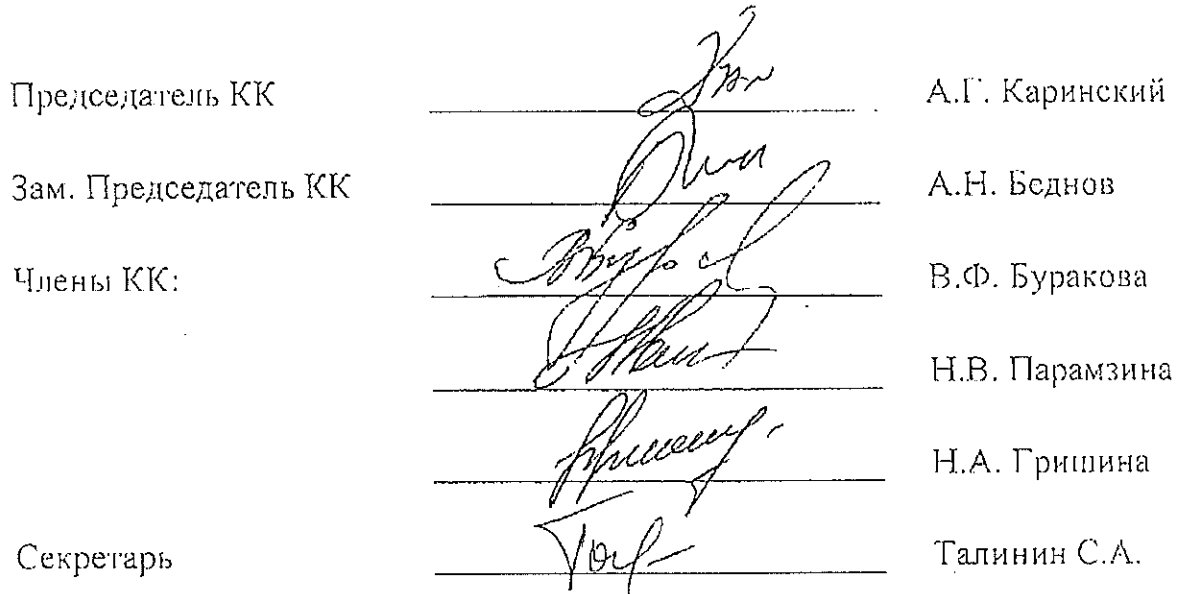 Председатель КК А.Г. Каринский
Зам. Председатель КК А.Н. Беднов
Члены КК: В.Ф. Буракова
Н.В. Парамзина
Н.А. Гришина
Секретарь Талинин С.А.